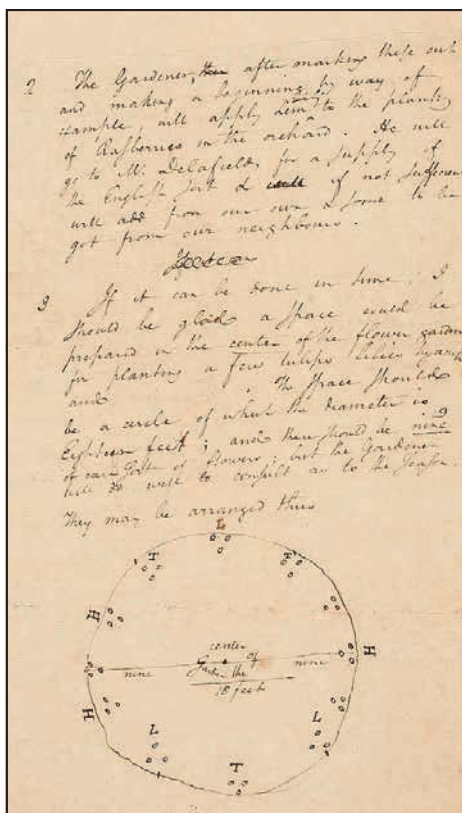 2 The Gardener, after marking these out
and making a beginning by way of
example, will apply himself to the planting
of Rasberries in the orchard. He will
go to Mr. Delafields for a supply of
the English sort & if not sufficient
will add from our own & some to be
got from our neighbours.
3 If it can be done in time, I
should be glad a space could be
prepared in the center of the flower garden
for planting a few tulips lilies hyacinths
and . The space should
be a circle of which the diameter is
Eighteen feet; and there should be nine
of each sort of flowers; but the Gardener
will do well to consult as to the season.
They may be arranged thus
L
T T
H
center
nine Garden of the nine H
18 feet
H
L L
T